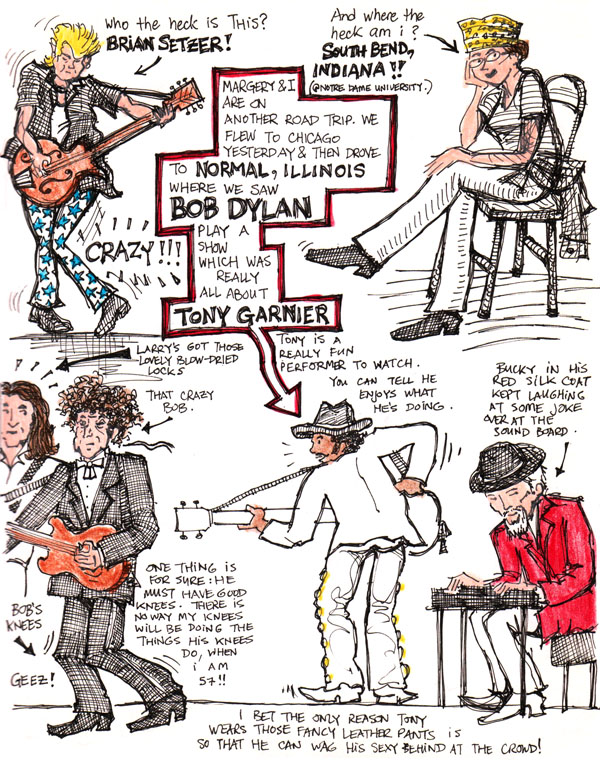 Who the heck is This?
BRIAN SETZER!
And where the
heck am i?
SOUTH BEND,
INDIANA!!
(@NOTRE DAME UNIVERSITY.)
MARGERY & I
ARE ON
ANOTHER ROAD TRIP. WE
FLEW TO CHICAGO
YESTERDAY & THEN DROVE
TO NORMAL, ILLINOIS
WHERE WE SAW
BOB DYLAN
PLAY A
SHOW
WHICH WAS
REALLY
ALL ABOUT
TONY GARNIER
CRAZY!!!
LARRY'S GOT THOSE
LOVELY BLOW-DRIED
LOCKS
THAT CRAZY
BOB.
TONY IS A
REALLY FUN
PERFORMER TO WATCH.
YOU CAN TELL HE
ENJOYS WHAT
HE'S DOING.
BUCKY IN HIS
RED SILK COAT
KEPT LAUGHING
AT SOME JOKE
OVER AT THE
SOUND BOARD.
BOB'S
KNEES
GEEZ!
ONE THING IS
FOR SURE: HE
MUST HAVE GOOD
KNEES. THERE IS
NO WAY MY KNEES
WILL BE DOING THE
THINGS HIS KNEES
DO, WHEN
i AM
57!!
I BET THE ONLY REASON TONY
WEARS THOSE FANCY LEATHER PANTS IS
SO THAT HE CAN WAG HIS SEXY BEHIND AT THE CROWD!